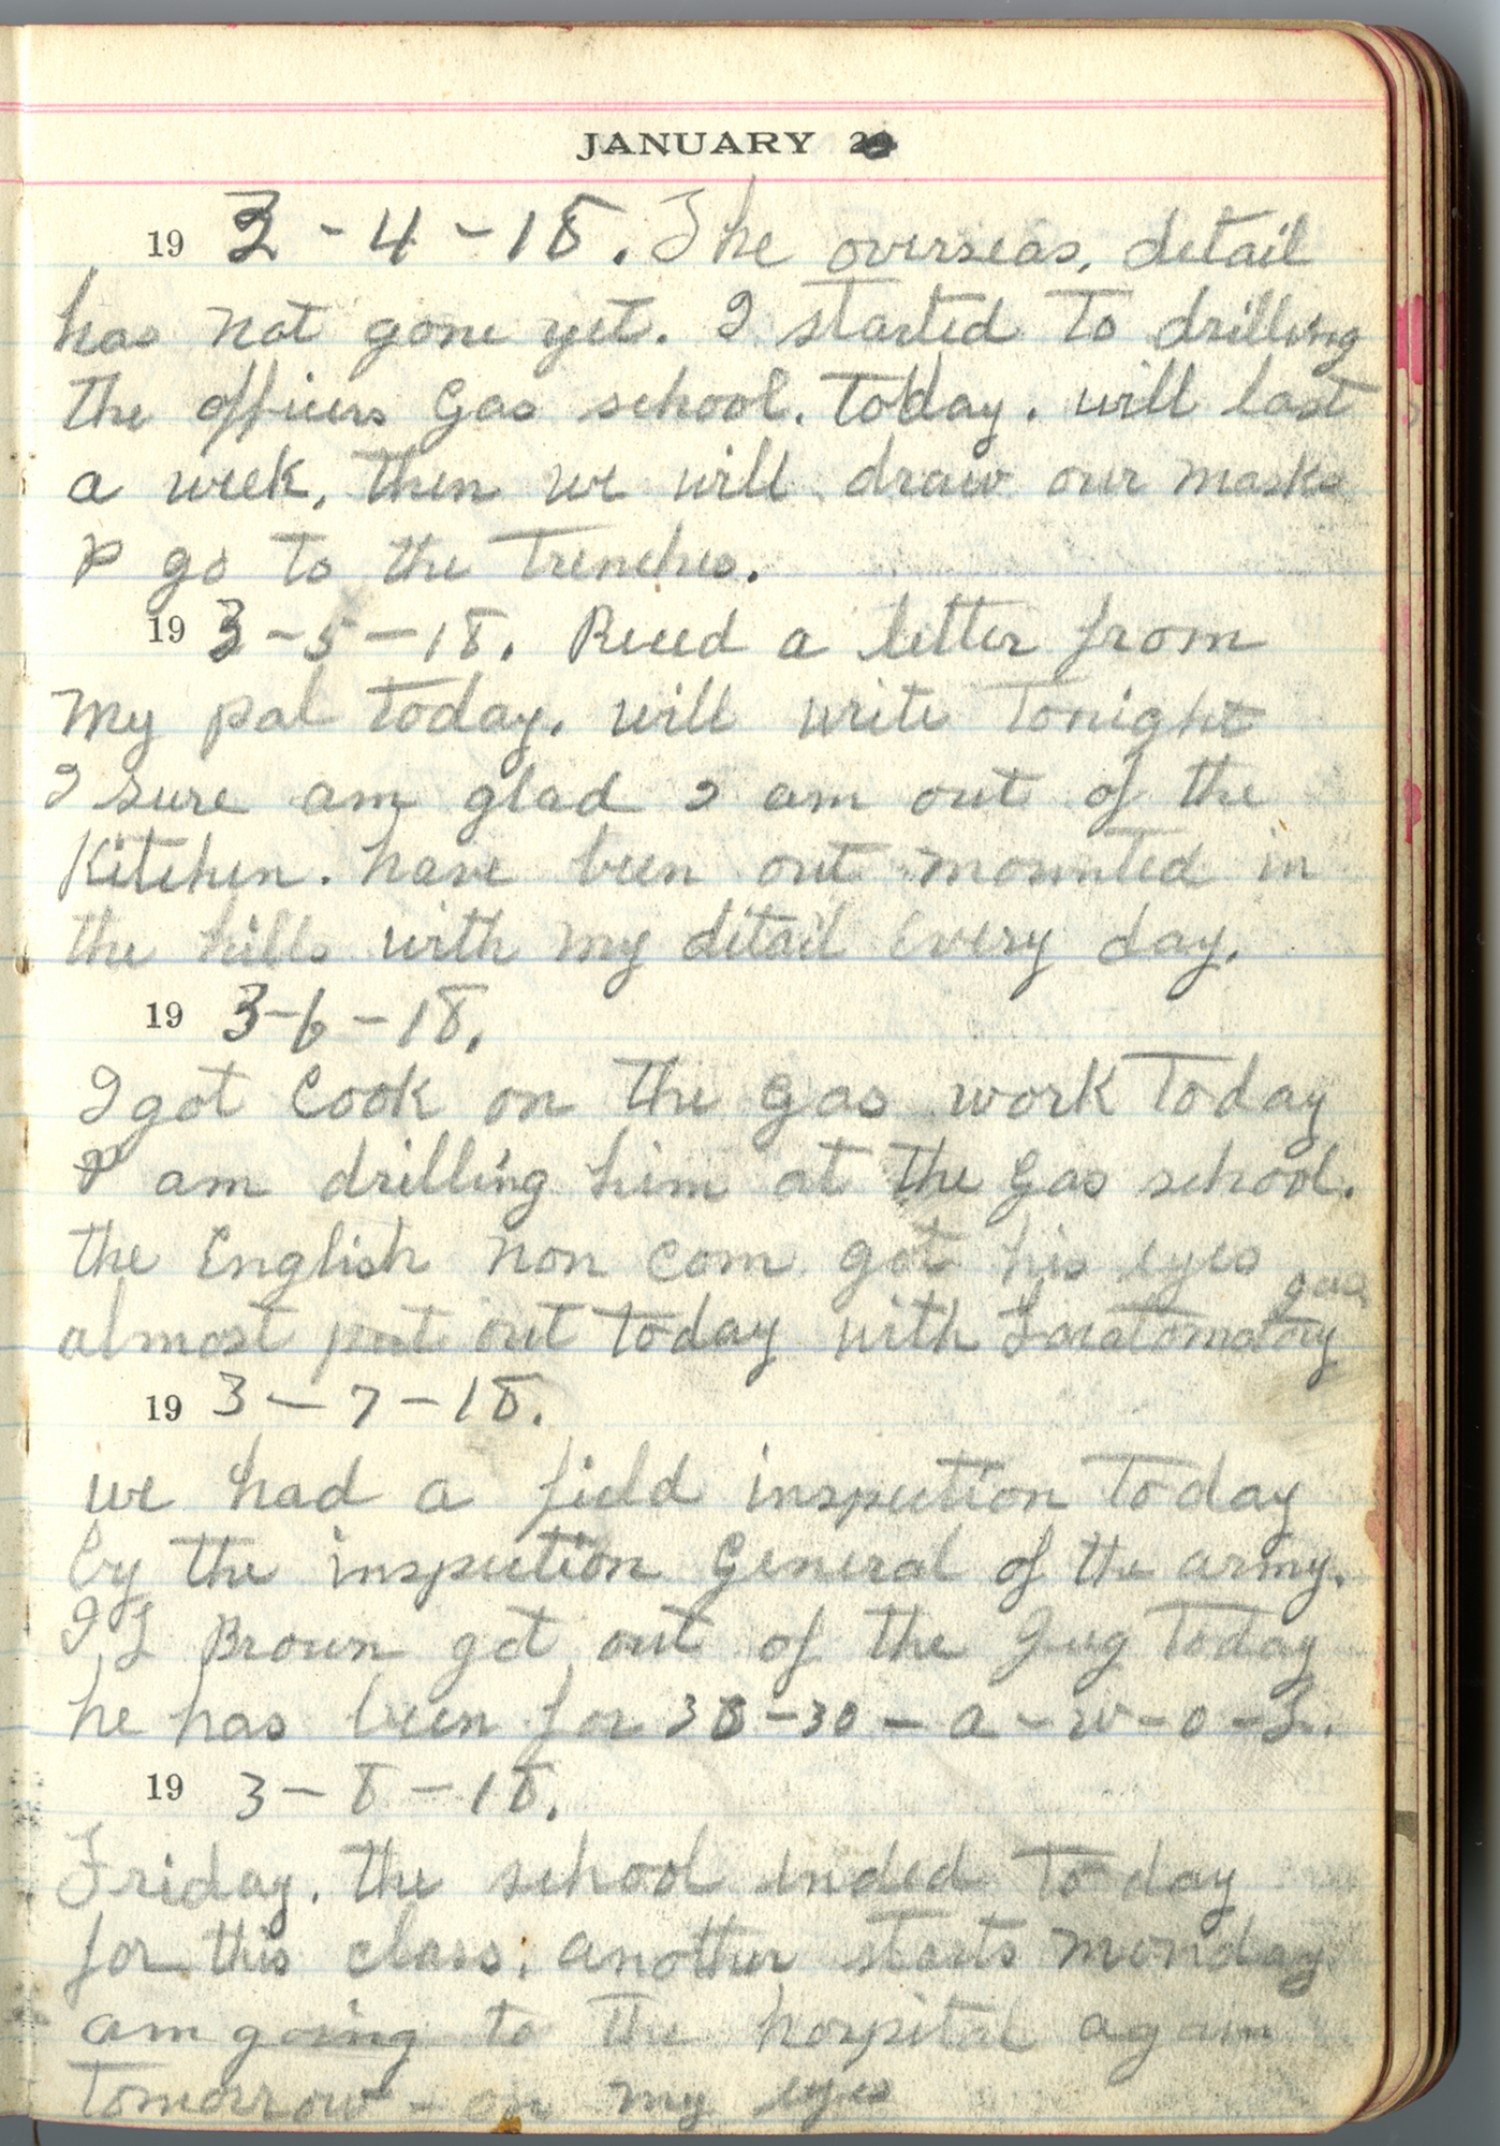 JANUARY
19 3-4-18. The overseas, detail
has not gone yet. I started to drilling
the officers Gas school. today. will last
a week, then we will draw our masks
& go to the trenches.
19 3-5-18. Recd a letter from
my pal today. will write tonight
I sure am glad I am out of the
Kitchen. have been out mounted in
the hills with my detail Every day.
19 3-6-18.
I got Cook on the Gas work today
& am drilling him at the Gas school.
the English non com got his eyes
almost put out today with gas
19 3-7-18.
we had a field inspection today
by the inspection General of the army.
Brown got out of the Jug today
he has been for 30-30-a-w-o-L.
19 3-8-18.
Friday. the school ended today
for this class. another starts monday
am going to the hospital again
tomorrow - on my eyes